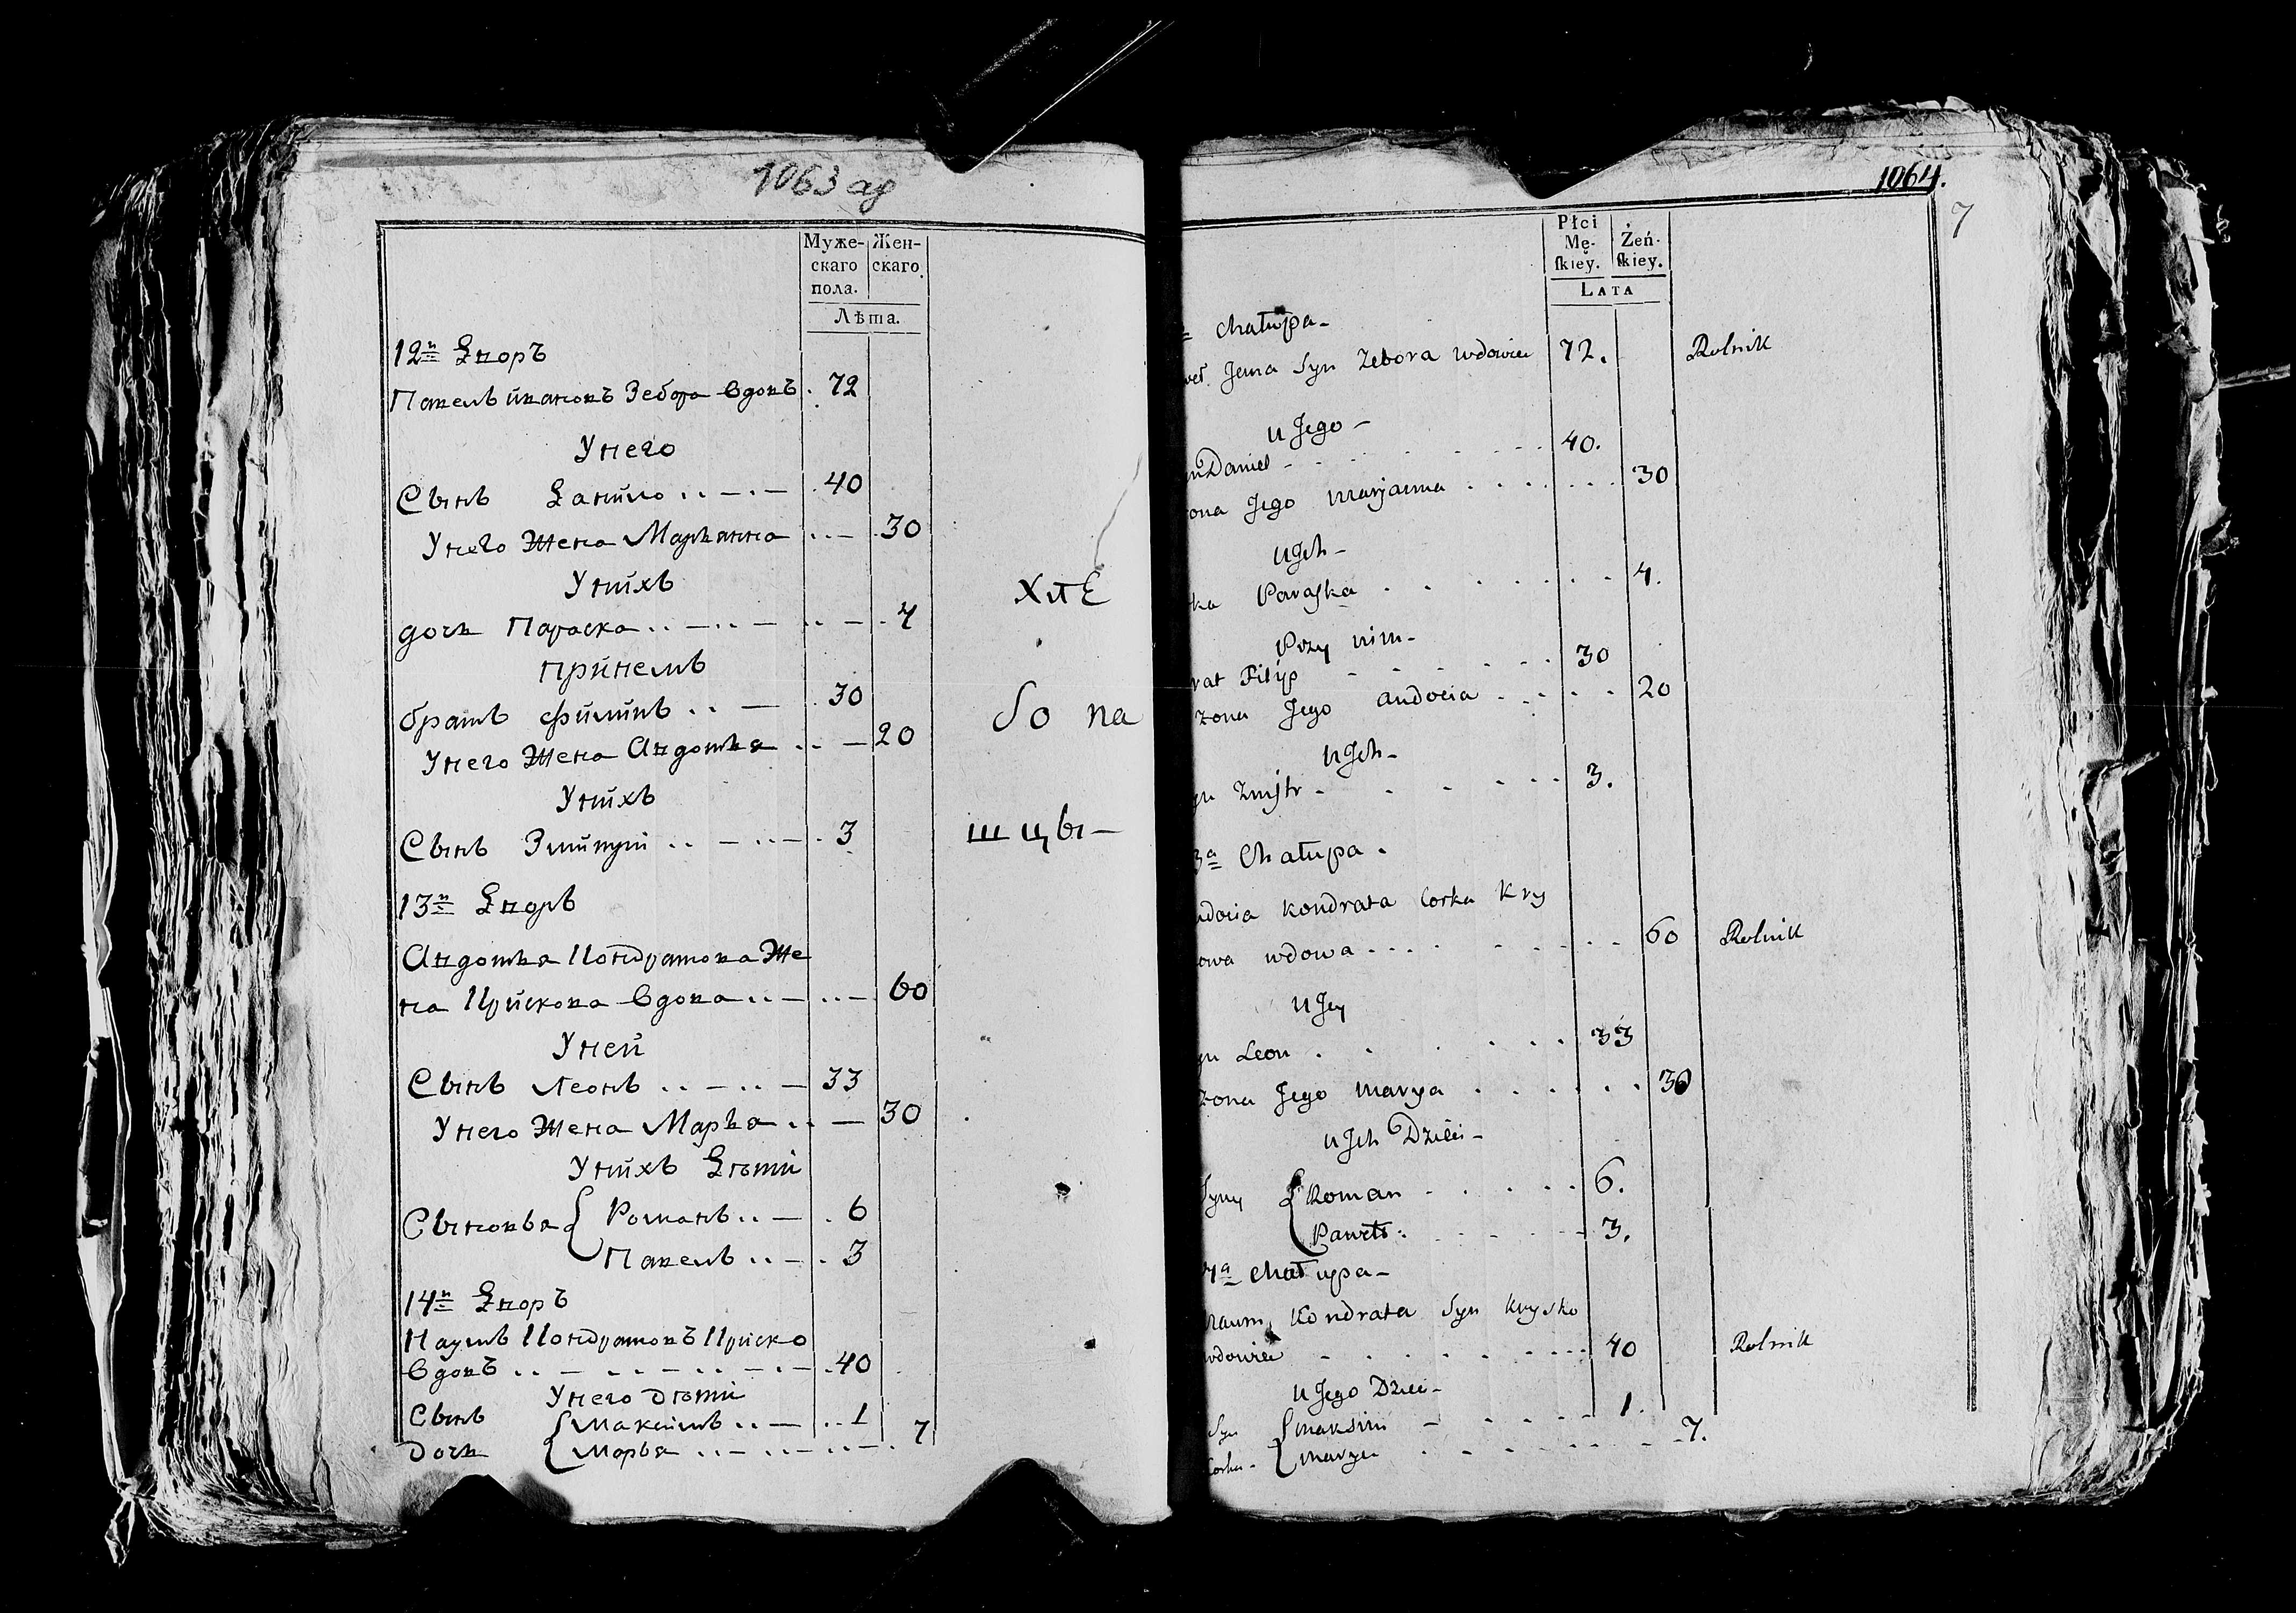 1063 ад
Муже-
скаго
пола.
Жен-
скаго.
Лѣта.
12й Дворъ
Павелъ Ивановъ Зебора вдовъ . 72
Унего
Сынъ Данило .. — . — . 40
Унего Жена Марьянна .. — . 30
Унихъ
дочь Параска .. — .. — .. — . 4
принемъ
братъ Филипъ .. — . 30
Унего Жена Авдотья .. — 20
Унихъ
Сынъ Змитри .. — .. — . 3
13й Дворъ
Авдотья Кондратова Же
на Крискова вдова .. — .. — 60
Уней
Сынъ Леонъ .. — .. — 33
Унего Жена Марья .. — 30
Унихъ Дѣти
Сыновья { Романъ .. — . 6
Павелъ .. — . 3
14й Дворъ
Наумъ Кондратовъ Криско
вдовъ .. — .. — .. — . — . 40
Унего дѣти
Сынъ { Максимъ .. — .. 1
дочь { Марья .. — .. — .. — . 7
хлѣ
бо па
шцы —
1064.
7
Płci
Mę-
ſkiey.
Żeń-
ſkiey.
LATA
Chałupa -
Jwana Syn Zebora wdowiec 72. Rolnik
u Jego -
Daniel - 40.
ona Jego Marjanna 30
u Jch -
ka Paraſka 4.
Przy nim -
rat Filip 30
żona Jego Audocia 20
u Jch -
yn Zmiſtr - 3.
3a Chałupa .
udocia Kondrata Corka Kry
owa wdowa 60 Rolnik
u Jey
yn Leon 33
żona Jego Marya 30
u Jch Dzieci -
Syny { Roman 6.
Paweł 3.
4a Chałupa -
Naum Kondrata Syn Krysko
wdowiec 40 Rolnik
u Jego Dzieci -
Syn { Maksim - 1.
Corka - { Marya 7.